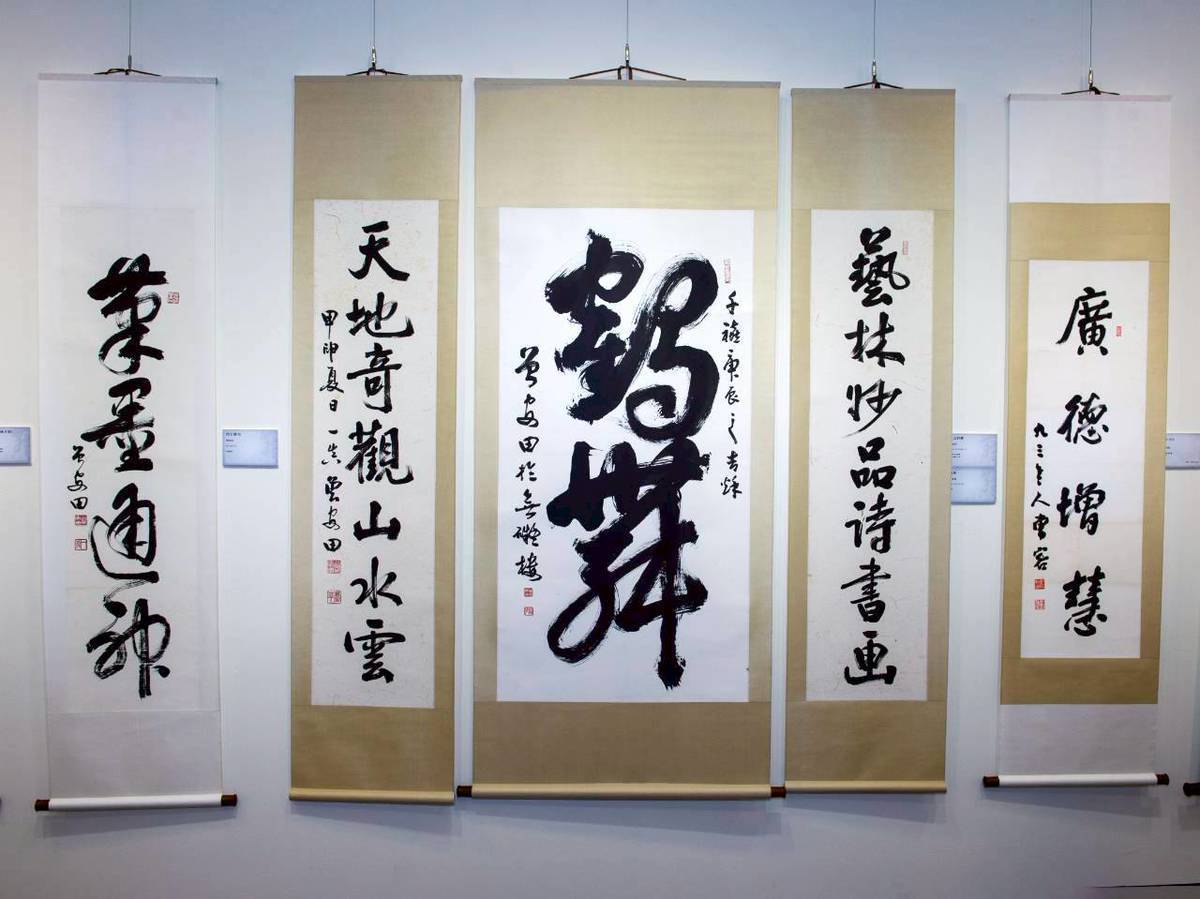 廣德增慧
九三老人曹容
藝林妙品詩書画
千禧庚辰之吉秌
鶴舞
曾安田於無礙樓
天地奇觀山水雲
甲申夏日 曾安田
筆墨通神
曾安田